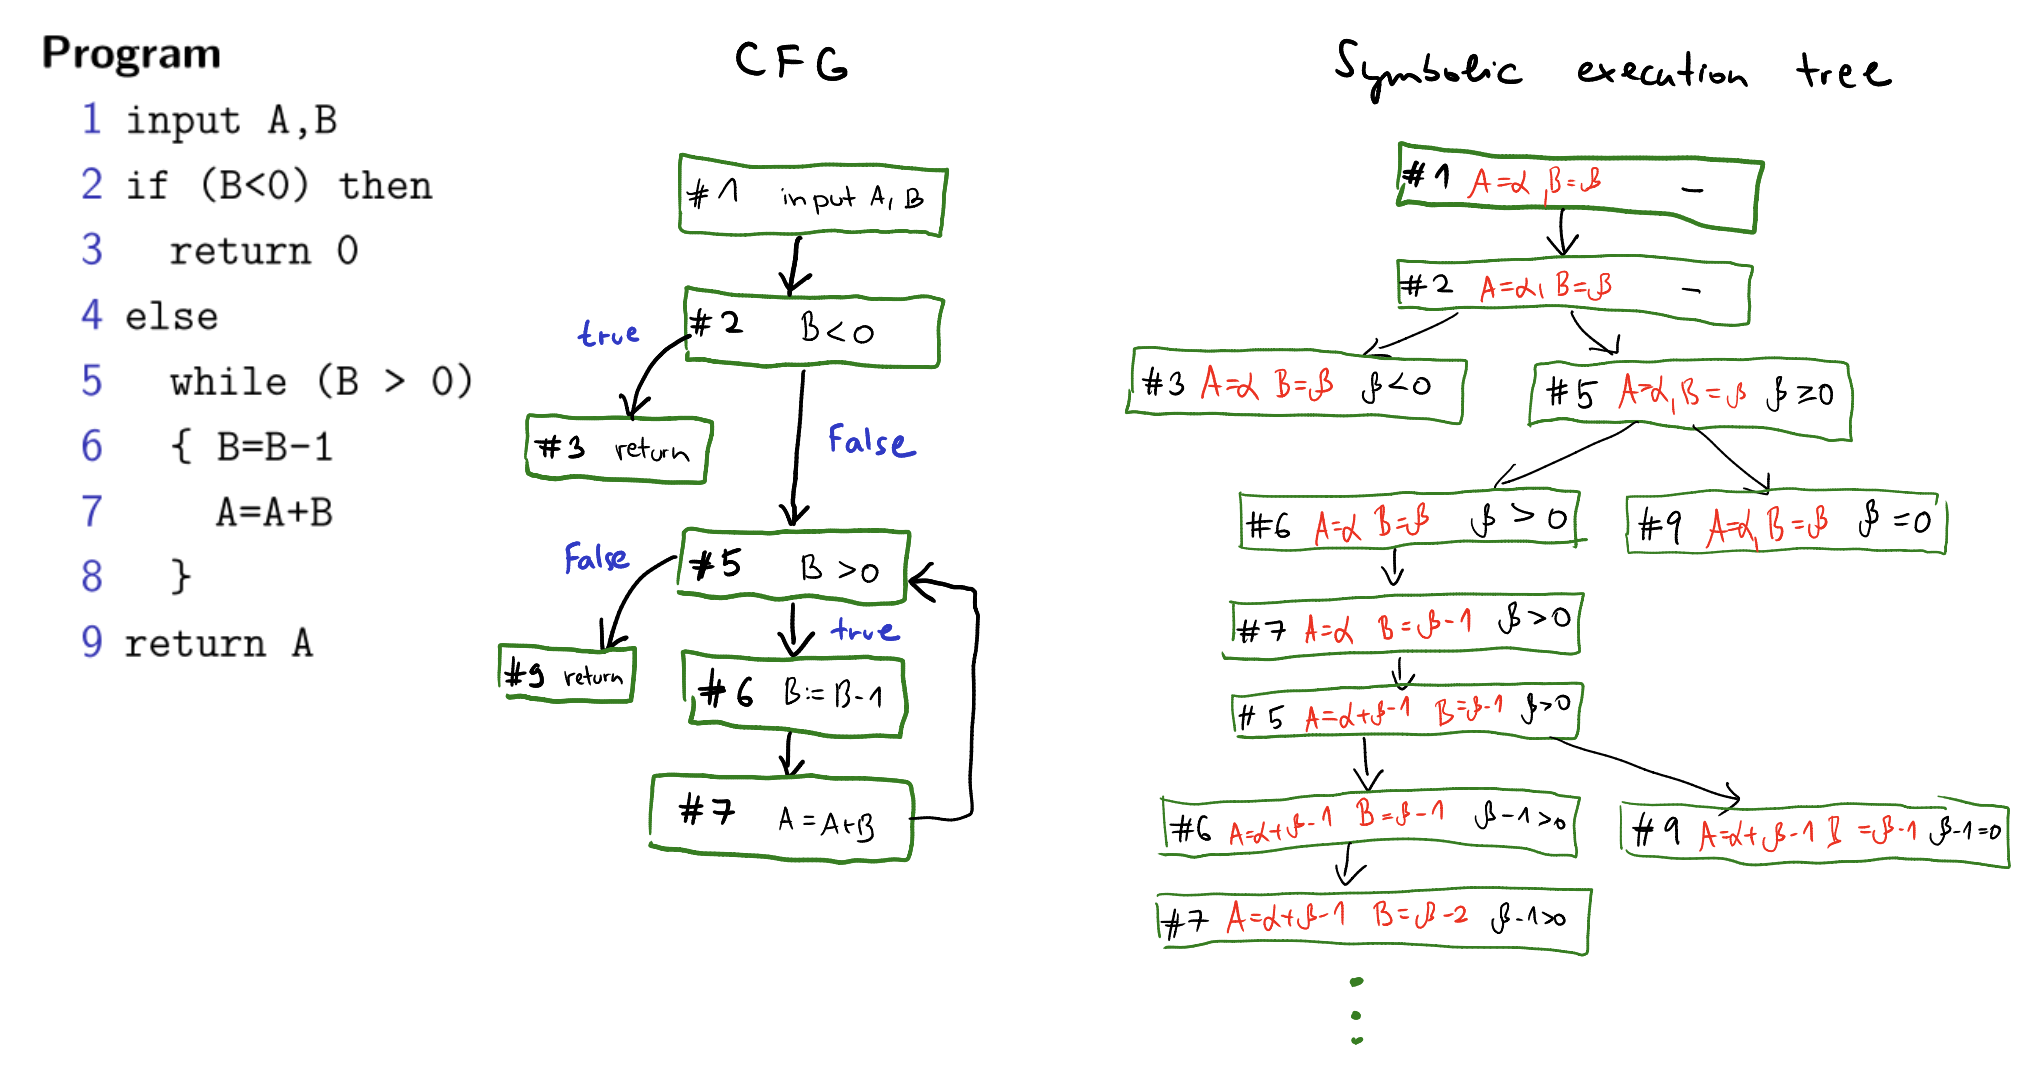 Program
1 input A,B
2 if (B<0) then
3 return 0
4 else
5 while (B > 0)
6 { B=B-1
7 A=A+B
8 }
9 return A
CFG
#1 input A, B
#2 B<0
true
#3 return
False
#5 B >0
False
true
#9 return
#6 B:=B-1
#7 A=A+B
Symbolic execution tree
#1 A=α, B=β –
#2 A=α, B=β –
#3 A=α B=β β<0
#5 A=α, B=β β≥0
#6 A=α B=β β>0
#9 A=α, B=β β=0
#7 A=α B=β-1 β>0
#5 A=α+β-1 B=β-1 β>0
#6 A=α+β-1 B=β-1 β-1>0
#9 A=α+β-1 B=β-1 β-1=0
#7 A=α+β-1 B=β-2 β-1>0